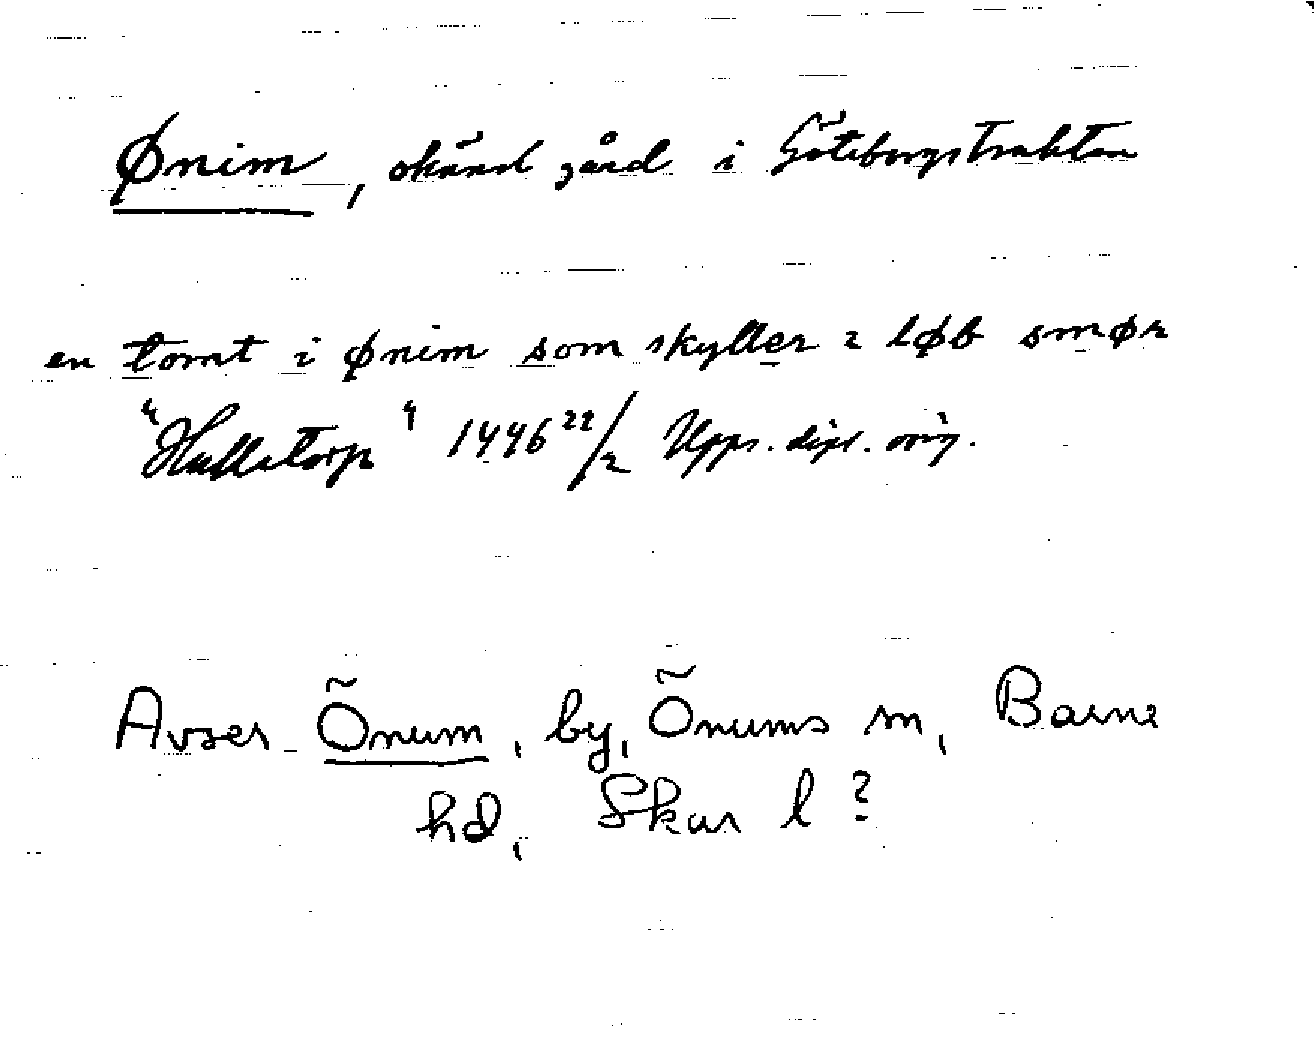 Ønim, okänd gård i Göteborgstrakten
en tomt i ønim som skyller 2 løb smør
"Hulletorp" 1446 22/2 Upps. dipl. orig.
Avser Õnum, by, Õnums sn, Barne
hd, Skar l?